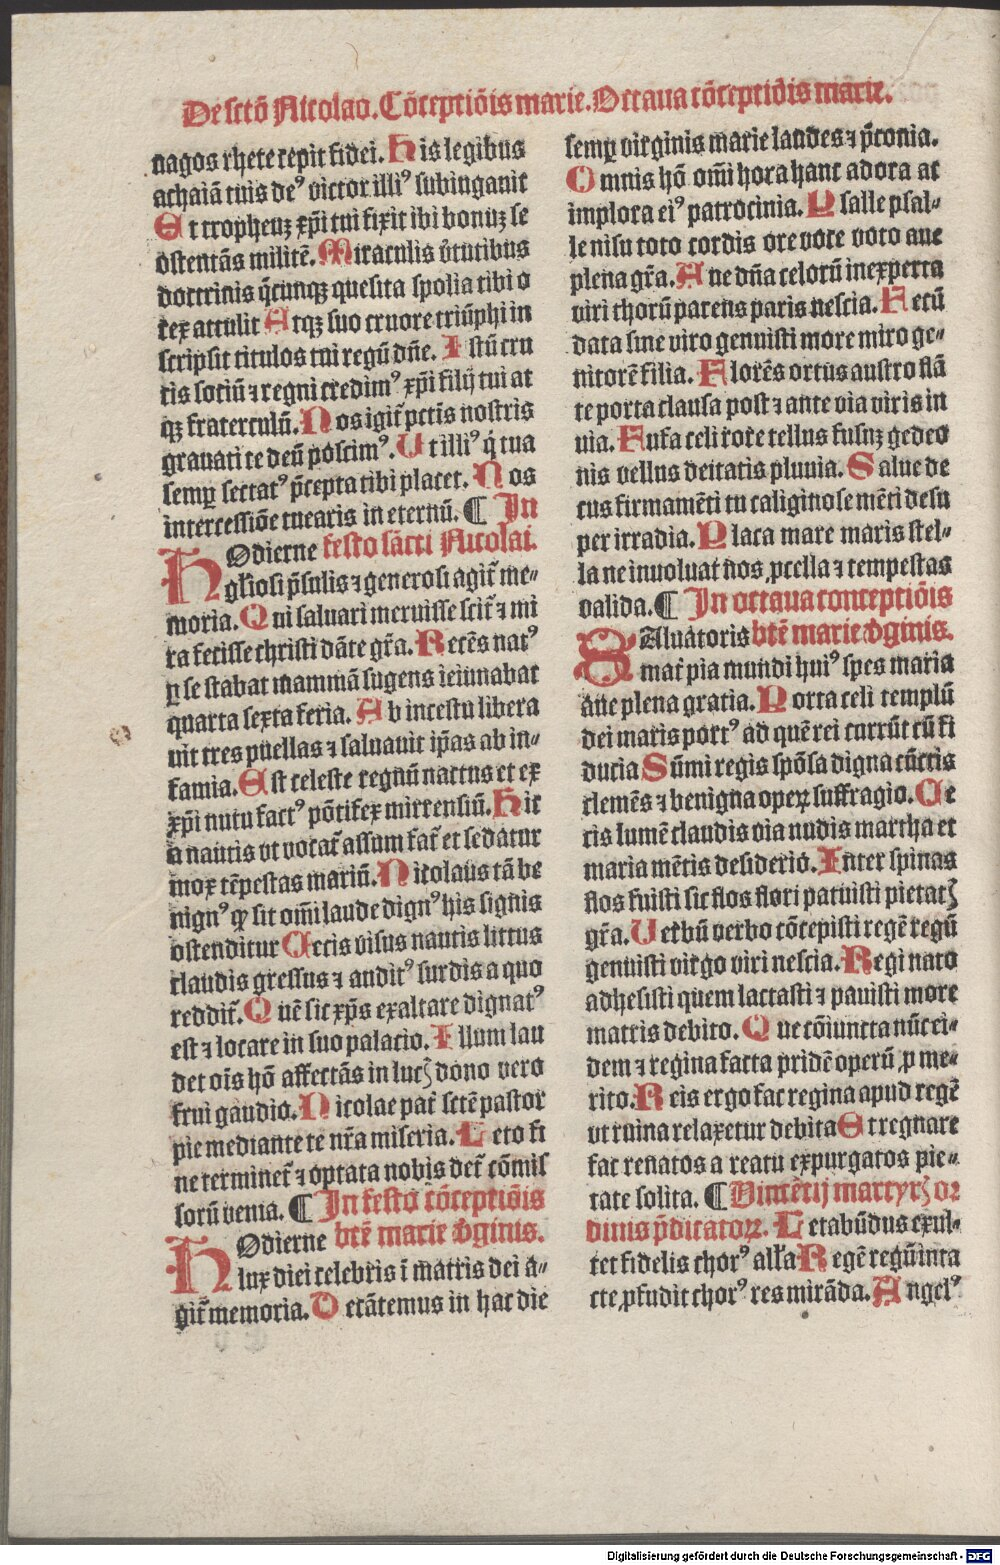 De sctō Nicolao. Cōceptiōis marie. Octaua cōceptiōis marie.
nagos rhetereꝑit fidei. His legibus
achaiā tuis deꝰ victor illiꝰ subiugauit
Et tropheuȝ xp̄i tui fixit ibi bonuȝ se
ostentās militē. Miraculis v̓tutibus
doctrinis q̄cunqȝ quesita spolia tibi o
rex attulit Atqȝ suo cruore triūphi in
scripsit titulos tui regū dn̄e. Istū cru
cis sociū ⁊ regni credimꝰ xp̄i filij tui at
qȝ fraterculū. Nos igit̄ pctīs nostris
grauati te deū poscimꝰ. Ut illiꝰ q̓ tua
semꝑ sectatꝰ p̄cepta tibi placet. Nos
intercessiōe tuearis in eternū. ¶ In
Hodierne festo sācti Nicolai.
gl̄iosi p̄sulis ⁊ generosi agit̄ me⸗
moria. Qui saluari meruisse scit̄ ⁊ mi
ra fecisse christi dāte gr̄a. Recēs natꝰ
ꝑ se stabat mammā sugens ieiunabat
quarta sexta feria. Ab incestu libera
uit tres puellas ⁊ saluauit ip̄as ab in⸗
famia. Est celeste regnū nactus et ex
xp̄i nutu factꝰ pōtifex mirrensiū. Hic
a nautis vt vocat̄ assum fat̄ et sedatur
mox tēpestas mariū. Nicolaus tā be
nignꝰ ꝙ sit om̄i laude dignꝰ his signis
ostenditur Cecis visus nautis littus
claudis gressus ⁊ auditꝰ surdis a quo
reddit̄. Quē sic xp̄s exaltare dignatꝰ
est ⁊ locare in suo palacio. Illum lau
det oīs hō affectās in lucꝫ dono vero
frui gaudio. Nicolae pat̄ sctē pastor
pie mediante te nr̄a miseria. Leto fi
ne terminet̄ ⁊ optata nobis det̄ cōmis
sorū venia. ¶ In festo cōceptiōis
btē marie v̓ginis.
Hodierne
lux diei celebris ī matris dei a⸗
git̄ memoria. Decātemus in hac die
semꝑ virginis marie laudes ⁊ p̄conia.
Omnis hō om̄i hora hanc adora ac
implora eiꝰ patrocinia. Psalle psal⸗
le nisu toto cordis ore voce voto aue
plena gr̄a. Aue dn̄a celorū inexperta
viri thorū parens paris nescia. Fecū
data sine viro genuisti more miro ge⸗
nitorē filia. Florēs ortus austro flā
te porta clausa post ⁊ ante via viris in
uia. Fusa celi rore tellus fusuȝ gedeo
nis vellus deitatis pluuia. Salue de
cus firmamēti tu caliginose mēti desu
per irradia. Placa mare maris stel⸗
la ne inuoluat nos ꝓcella ⁊ tempestas
valida. ¶ In octaua conceptiōis
Saluatoris btē marie v̓ginis.
mat̄ pia mundi huiꝰ spes maria
aue plena gratia. Porta celi templū
dei maris portꝰ ad quē rei currūt cū fi
ducia Sūmi regis spōsa digna cūctis
clemēs ⁊ benigna operꝝ suffragio. Ce
cis lumē claudis via nudis martha et
maria mētis desiderio. Inter spinas
flos fuisti sic flos flori patuisti pietatꝫ
gr̄a. Uerbū verbo cōcepisti regē regū
genuisti virgo viri nescia. Regi nato
adhesisti quem lactasti ⁊ pauisti more
matris debito. Que cōiuncta nūc ei⸗
dem ⁊ regina facta pridē operū ꝓ me⸗
rito. Reis ergo fac regina apud regē
vt ruina relaxetur debita Et regnare
fac renatos a reatu expurgatos pie⸗
tate solita. ¶ Vincētij martyrꝫ or
dinis p̄dicatorꝝ. Letabūdus exul⸗
tet fidelis chorꝰ all̄a Regē regū inta
cte ꝓfudit thorꝰ res mirāda. Angelꝰ
Digitalisierung gefördert durch die Deutsche Forschungsgemeinschaft - DFG